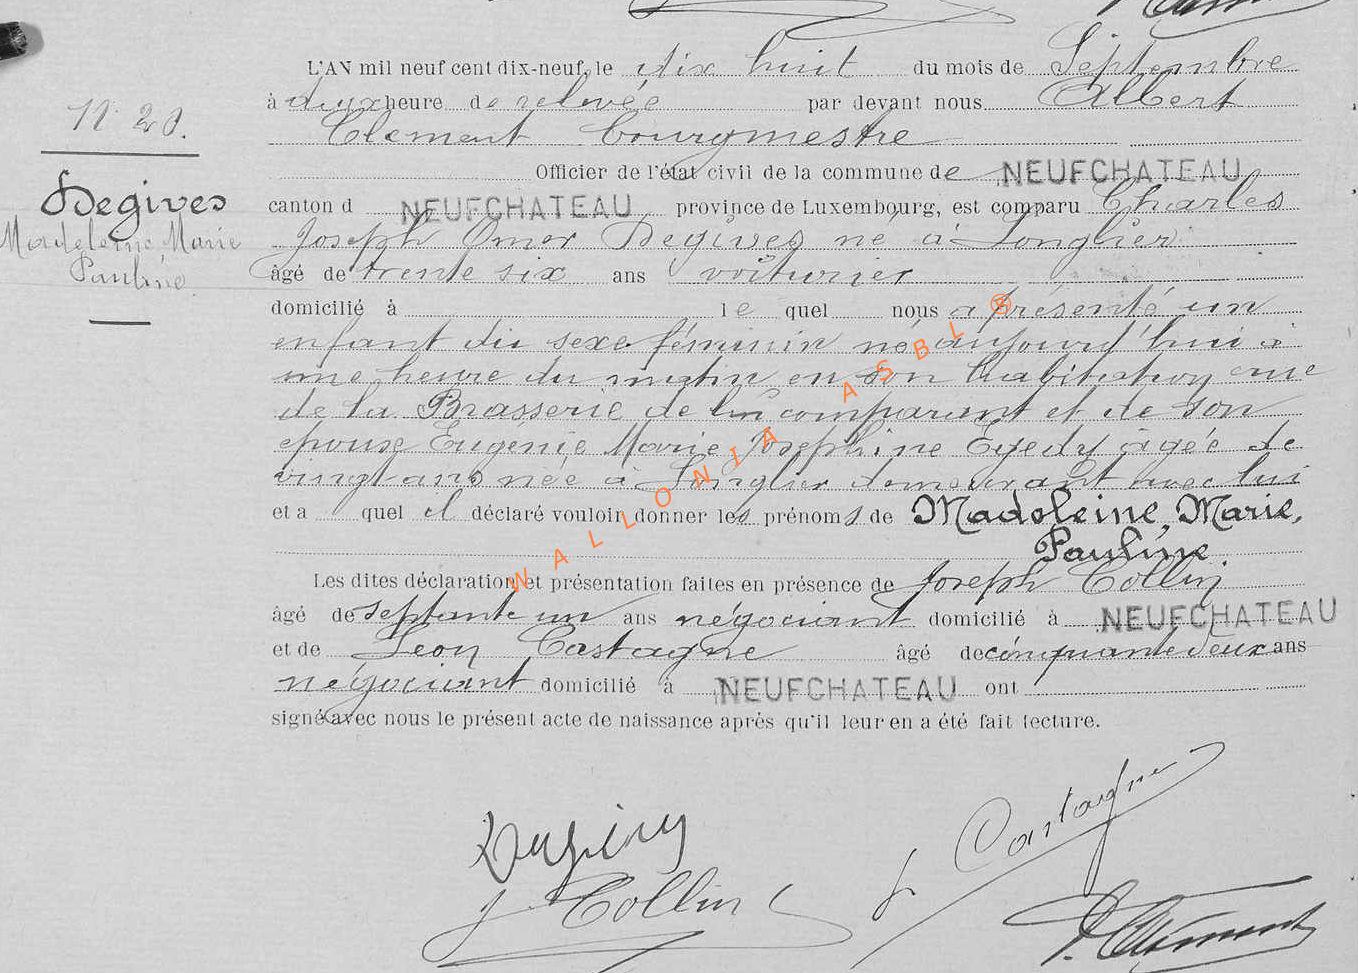 N° 20.
Degives
Madeleine Marie
Pauline
L'AN mil neuf cent dix-neuf, le dix huit du mois de Septembre
à deux heure de relevée par devant nous Albert
Clément bourgmestre
Officier de l'état civil de la commune de NEUFCHATEAU
canton d NEUFCHATEAU province de Luxembourg, est comparu Charles
Joseph Omer Degives né à Longlier
âgé de trente six ans voiturier
domicilié à le quel nous a présenté un
enfant du sexe féminin né aujourd'hui à
une heure du matin en son habitation rue
de la Brasserie de lui comparant et de son
épouse Eugénie Marie Josephine âgée de
vingt ans née à Longlier demeurant avec lui
et a quel il déclaré vouloir donner les prénoms de Madeleine, Marie,
Pauline
Les dites déclaration et présentation faites en présence de Joseph Collin
âgé de septante un ans négociant domicilié à NEUFCHATEAU
et de Léon Castagne âgé de cinquante deux ans
négociant domicilié à NEUFCHATEAU ont
signé avec nous le présent acte de naissance après qu'il leur en a été fait lecture.
WALLONIA ASBL ®
Degives
Castagne
J Collin
Clément